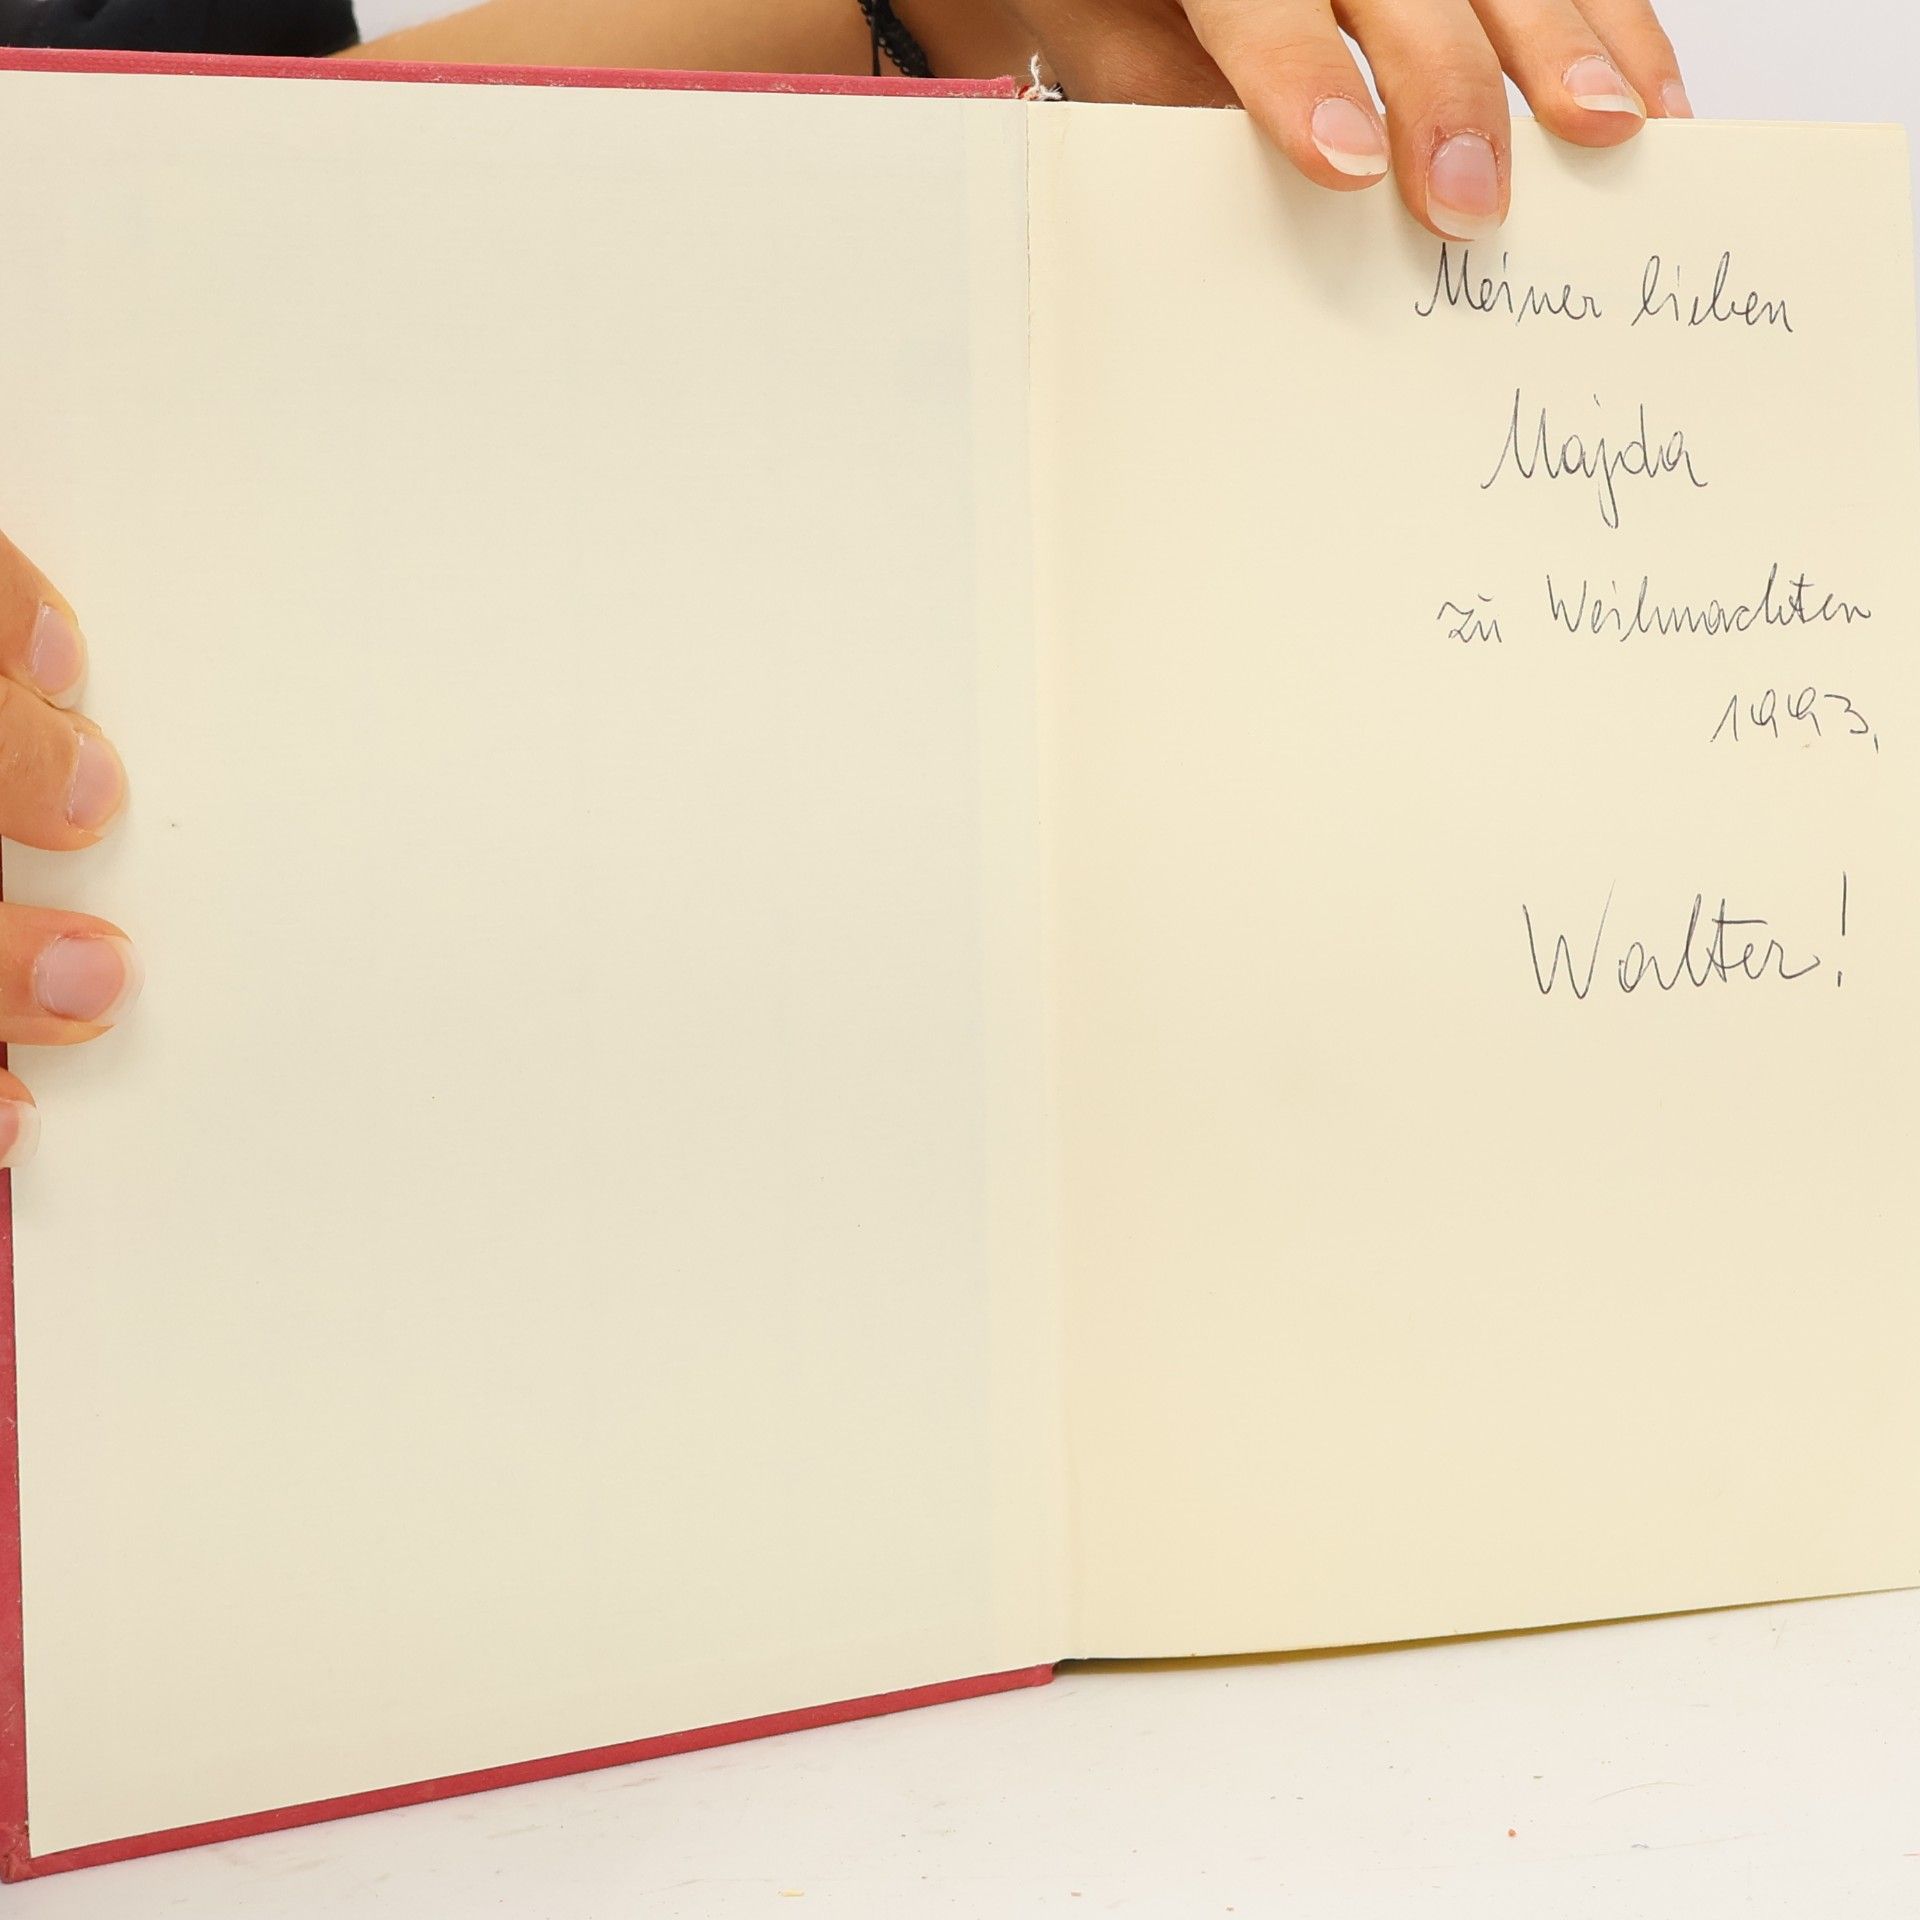 Meiner lieben
Majda
zu Weihnachten
1993,
Walter!